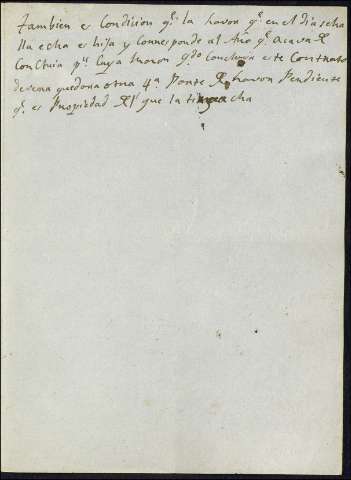 tambien es Condicion qe. la havor qe. en el dia se ha
lla echa es hija y Corresponde al Año qe. acava de
Concluir pr. Cuya Razon qdo. Concluya este Contrato
devera quedar otra 4a. Parte de havor Pendiente
qe. es Propiedad del que la tenga echa